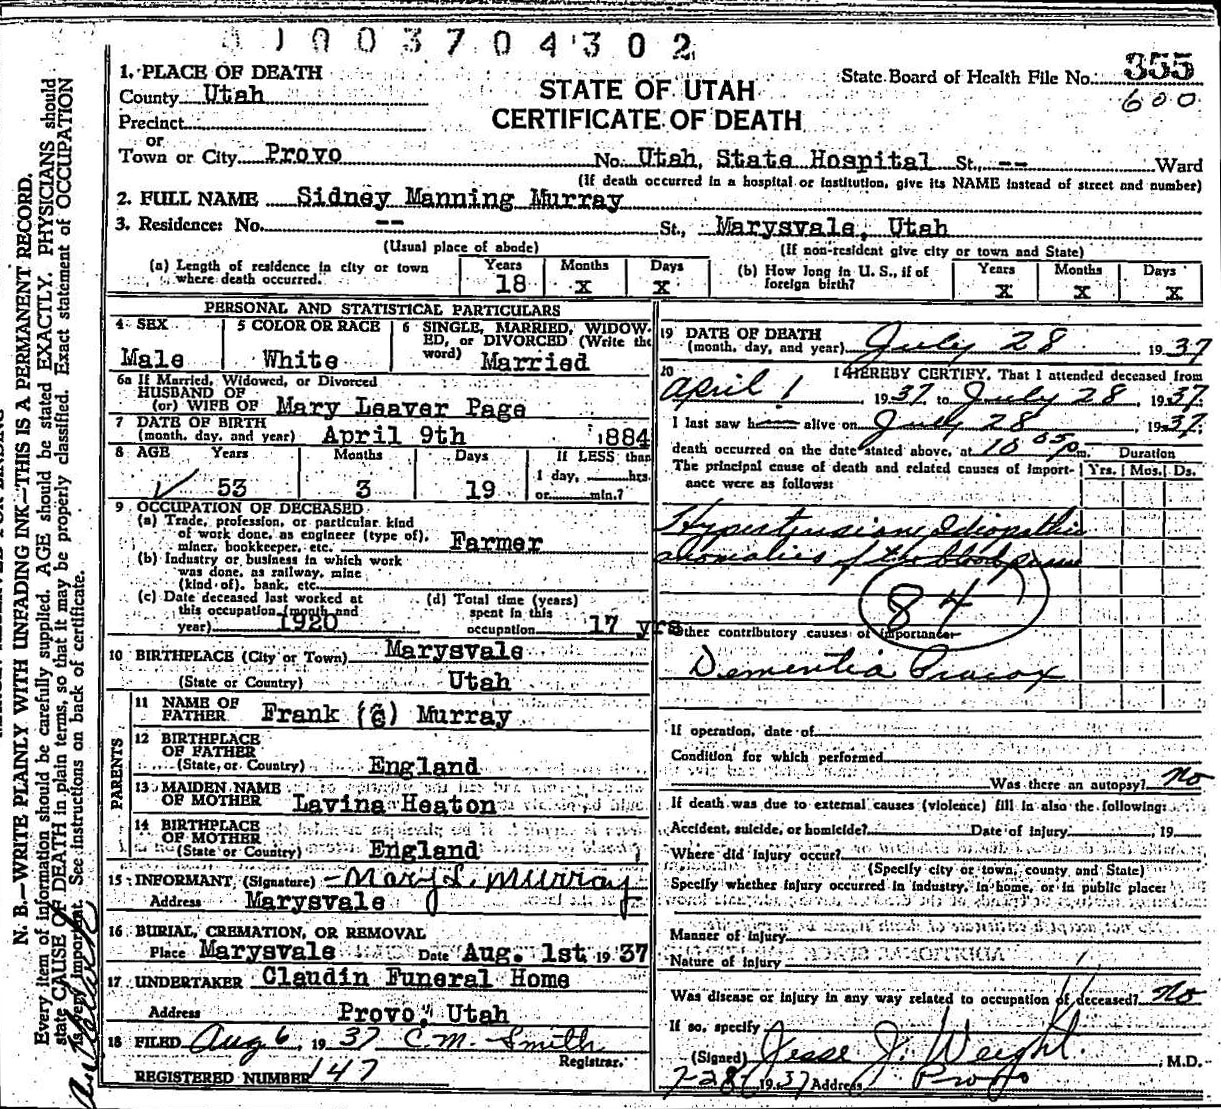 0 1 0 0 3 7 0 4 3 0 2
State Board of Health File No. 355
600
STATE OF UTAH
CERTIFICATE OF DEATH
1. PLACE OF DEATH
County Utah
Precinct
or
Town or City Provo No. Utah State Hospital St., -- Ward
(If death occurred in a hospital or institution, give its NAME instead of street and number)
2. FULL NAME Sidney Manning Murray
3. Residence: No. -- St., Marysvale, Utah
(Usual place of abode) (If non-resident give city or town and State)
(a) Length of residence in city or town where death occurred. Years 18 Months x Days x
(b) How long in U. S., if of foreign birth? Years x Months x Days x
PERSONAL AND STATISTICAL PARTICULARS
4 SEX Male
5 COLOR OR RACE White
6 SINGLE, MARRIED, WIDOWED, or DIVORCED (Write the word) Married
6a If Married, Widowed, or Divorced
HUSBAND OF
(or) WIFE OF Mary Leaver Page
7 DATE OF BIRTH
(month, day, and year) April 9th 1884
8 AGE Years 53 Months 3 Days 19 If LESS than 1 day, hrs. or min.?
9 OCCUPATION OF DECEASED
(a) Trade, profession, or particular kind
of work done, as engineer (type of),
miner, bookkeeper, etc. Farmer
(b) Industry or business in which work
was done, as railway, mine
(kind of), bank, etc.
(c) Date deceased last worked at
this occupation (month and
year) 1920
(d) Total time (years)
spent in this
occupation 17 yrs
10 BIRTHPLACE (City or Town) Marysvale
(State or Country) Utah
PARENTS
11 NAME OF
FATHER Frank (G) Murray
12 BIRTHPLACE
OF FATHER
(State, or Country) England
13 MAIDEN NAME
OF MOTHER Lavina Heaton
14 BIRTHPLACE
OF MOTHER
(State or Country) England
15 INFORMANT (Signature) Mary L. Murray
Address Marysvale
16 BURIAL, CREMATION, OR REMOVAL
Place Marysvale Date Aug. 1st 1937
17 UNDERTAKER Claudin Funeral Home
Address Provo, Utah
18 FILED Aug 6, 1937 C.M. Smith
Registrar.
REGISTERED NUMBER 147
19 DATE OF DEATH
(month, day, and year) July 28 1937
20 I HEREBY CERTIFY, That I attended deceased from
April 1 1937 to July 28, 1937.
I last saw h alive on July 28, 1937.
death occurred on the date stated above, at 10 05 p m. Duration
The principal cause of death and related causes of importance were as follows: Yrs. Mos. Ds.
Hypertension, Idiopathic
anomalies of the blood
84
Other contributory causes of importance
Dementia Praecox
If operation, date of
Condition for which performed
Was there an autopsy? no
If death was due to external causes (violence) fill in also the following:
Accident, suicide, or homicide? Date of injury , 19
Where did injury occur?
(Specify city or town, county and State)
Specify whether injury occurred in industry, in home, or in public place:
Manner of injury
Nature of injury
Was disease or injury in any way related to occupation of deceased? no
If so, specify
(Signed) Jesse J. Weight, M.D.
7-28, 1937 Address Provo
N. B.—WRITE PLAINLY WITH UNFADING INK—THIS IS A PERMANENT RECORD.
Every item of information should be carefully supplied. AGE should be stated EXACTLY. PHYSICIANS should
state CAUSE OF DEATH in plain terms, so that it may be properly classified. Exact statement of OCCUPATION
is very important. See instructions on back of certificate.